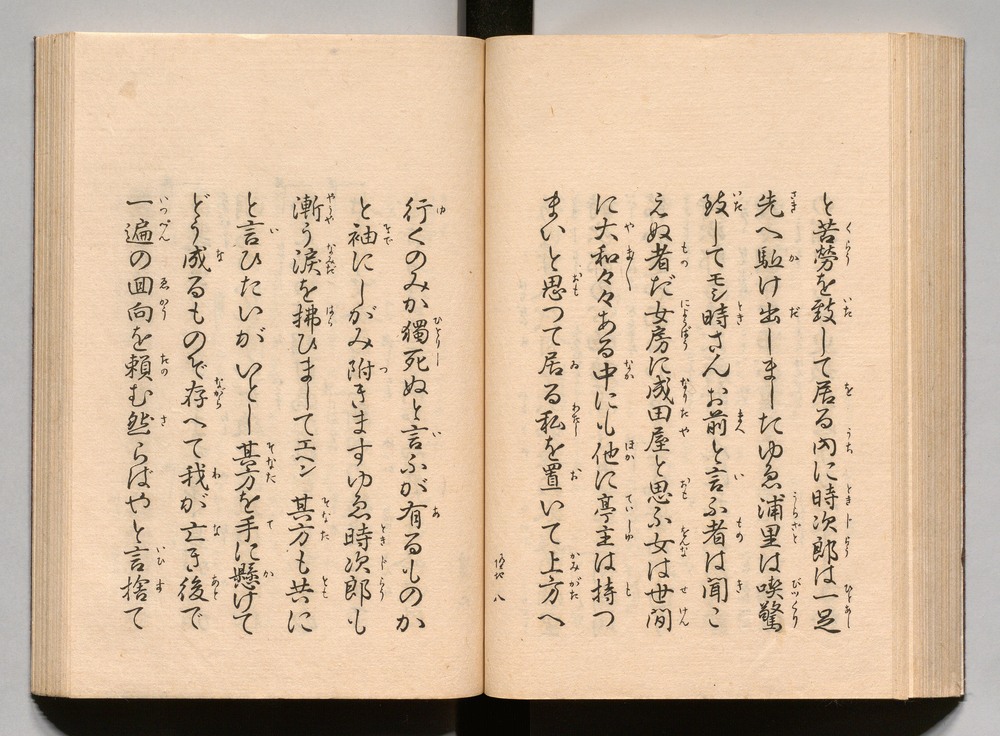 と苦勞を致して居る内に時次郎は一足
先へ駈け出しましたゆゑ浦里は喫驚
致してモシ時さんお前と言ふ者は聞こ
えぬ者だ女房に成田屋と思ふ女は世間
に大和々々ある中にも他に亭主は持つ
まいと思つて居る私を置いて上方へ
八
行くのみか獨死ぬと言ふが有るものか
と袖にしがみ附きますゆゑ時次郎も
漸う涙を拂ひましてエヘン其方も共に
と言ひたいがいとし其方を手に懸けて
どう成るものぞ存へて我が亡き後で
一遍の囘向を頼む然らばやと言捨て